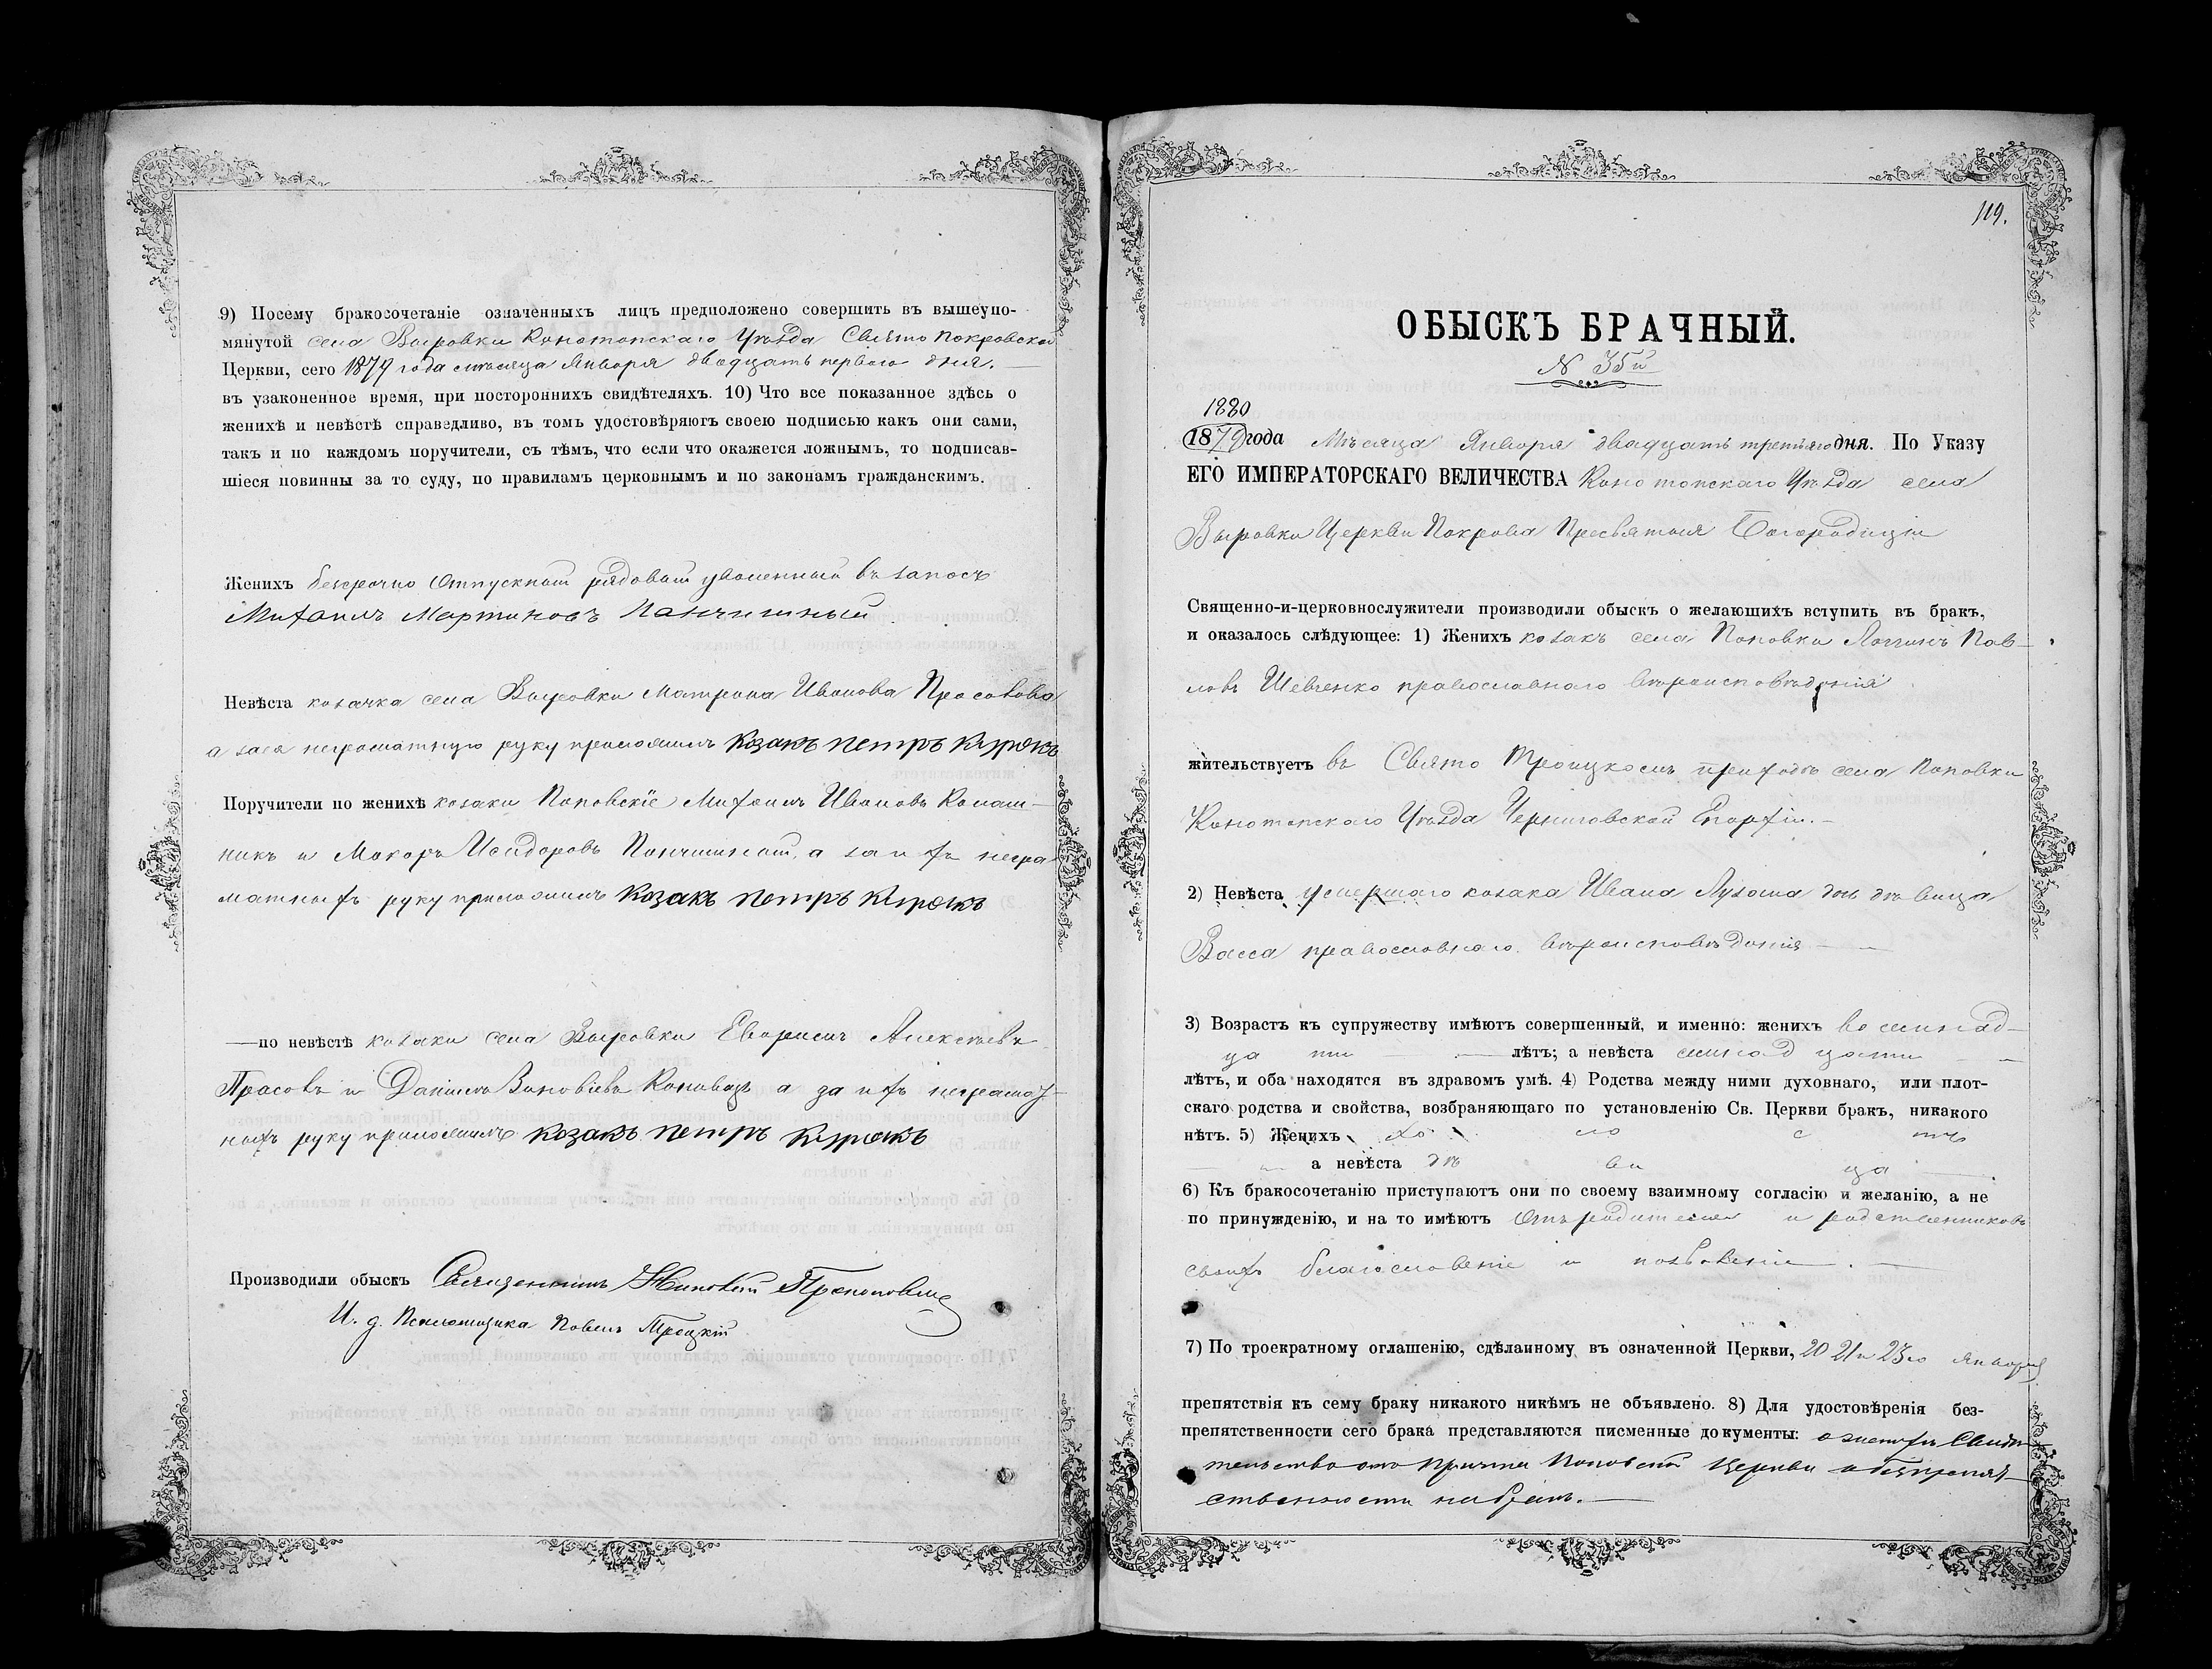 9) Посему бракосочетаніе означенныхъ лицъ предположено совершить въ вышеупо-
мянутой села Выровки Конотопскаго Уѣзда Свято Покровской
Церкви, сего 1879 года мѣсяца Января двадцать перваго дня.
въ узаконенное время, при постороннихъ свидѣтеляхъ. 10) Что все показанное здѣсь о
женихѣ и невѣстѣ справедливо, въ томъ удостовѣряютъ своею подписью какъ они сами,
такъ и по каждомъ поручители, съ тѣмъ, что если что окажется ложнымъ, то подписав-
шіеся повинны за то суду, по правиламъ церковнымъ и по законамъ гражданскимъ.
Женихъ безсрочно отпускной рядовой уволенный въ запасъ
Михаилъ Мартиновъ Панчишный
Невѣста козачка села Выровки Матрона Иванова Прасолова
а за неграматную руку приложилъ Козакъ Петръ
Поручители по женихѣ козаки Поповскіе Михаилъ Ивановъ
и Макаръ Исидоровъ Панчишный, а за ихъ негра
матныхъ руку приложилъ Козакъ Петръ
—по невѣстѣ козаки села Выровки Алексѣевъ
и Даніилъ а за ихъ неграмат-
ныхъ руку приложилъ Козакъ Петръ
Производили обыскъ Священникъ Прокоповичъ
И. д. Псаломщика Павелъ Троцкій
119.
ОБЫСКЪ БРАЧНЫЙ.
N 35й
1880
1879 года Мѣсяца Января двадцать третьяго дня. По Указу
ЕГО ИМПЕРАТОРСКАГО ВЕЛИЧЕСТВА Конотопскаго Уѣзда села
Выровки Церкви Покрова Пресвятыя Богородицы
Священно-и-церковнослужители производили обыскъ о желающихъ вступить въ бракъ,
и оказалось слѣдующее: 1) Женихъ козакъ села Поповки Логинъ Пав-
ловъ Шевченко православнаго вѣроисповѣданія
жительствуетъ въ Свято Троицкомъ приходѣ села Поповки
Конотопскаго Уѣзда Черниговской Епархіи.
2) Невѣста умершаго козака Ивана дѣвица
Васса православнаго вѣроисповѣданія
3) Возрастъ къ супружеству имѣютъ совершенный, и именно: женихъ восемнад-
цати лѣтъ; а невѣста семнадцати
лѣтъ, и оба находятся въ здравомъ умѣ. 4) Родства между ними духовнаго, или плот-
скаго родства и свойства, возбраняющаго по установленію Св. Церкви бракъ, никакого
нѣтъ. 5) Женихъ холостъ
а невѣста дѣвица
6) Къ бракосочетанію приступаютъ они по своему взаимному согласію и желанію, а не
по принужденію, и на то имѣютъ отъ родителей и родственниковъ
своихъ благословеніе и позволеніе.
7) По троекратному оглашенію, сдѣланному въ означенной Церкви, 20 21 и 23го Января
препятствія къ сему браку никакого никѣмъ не объявлено. 8) Для удостовѣренія без-
препятственности сего брака представляются писменные документы: о женихѣ Свидѣ-
тельство отъ Причта Поповской Церкви о безпрепят-
ственности на бракъ.